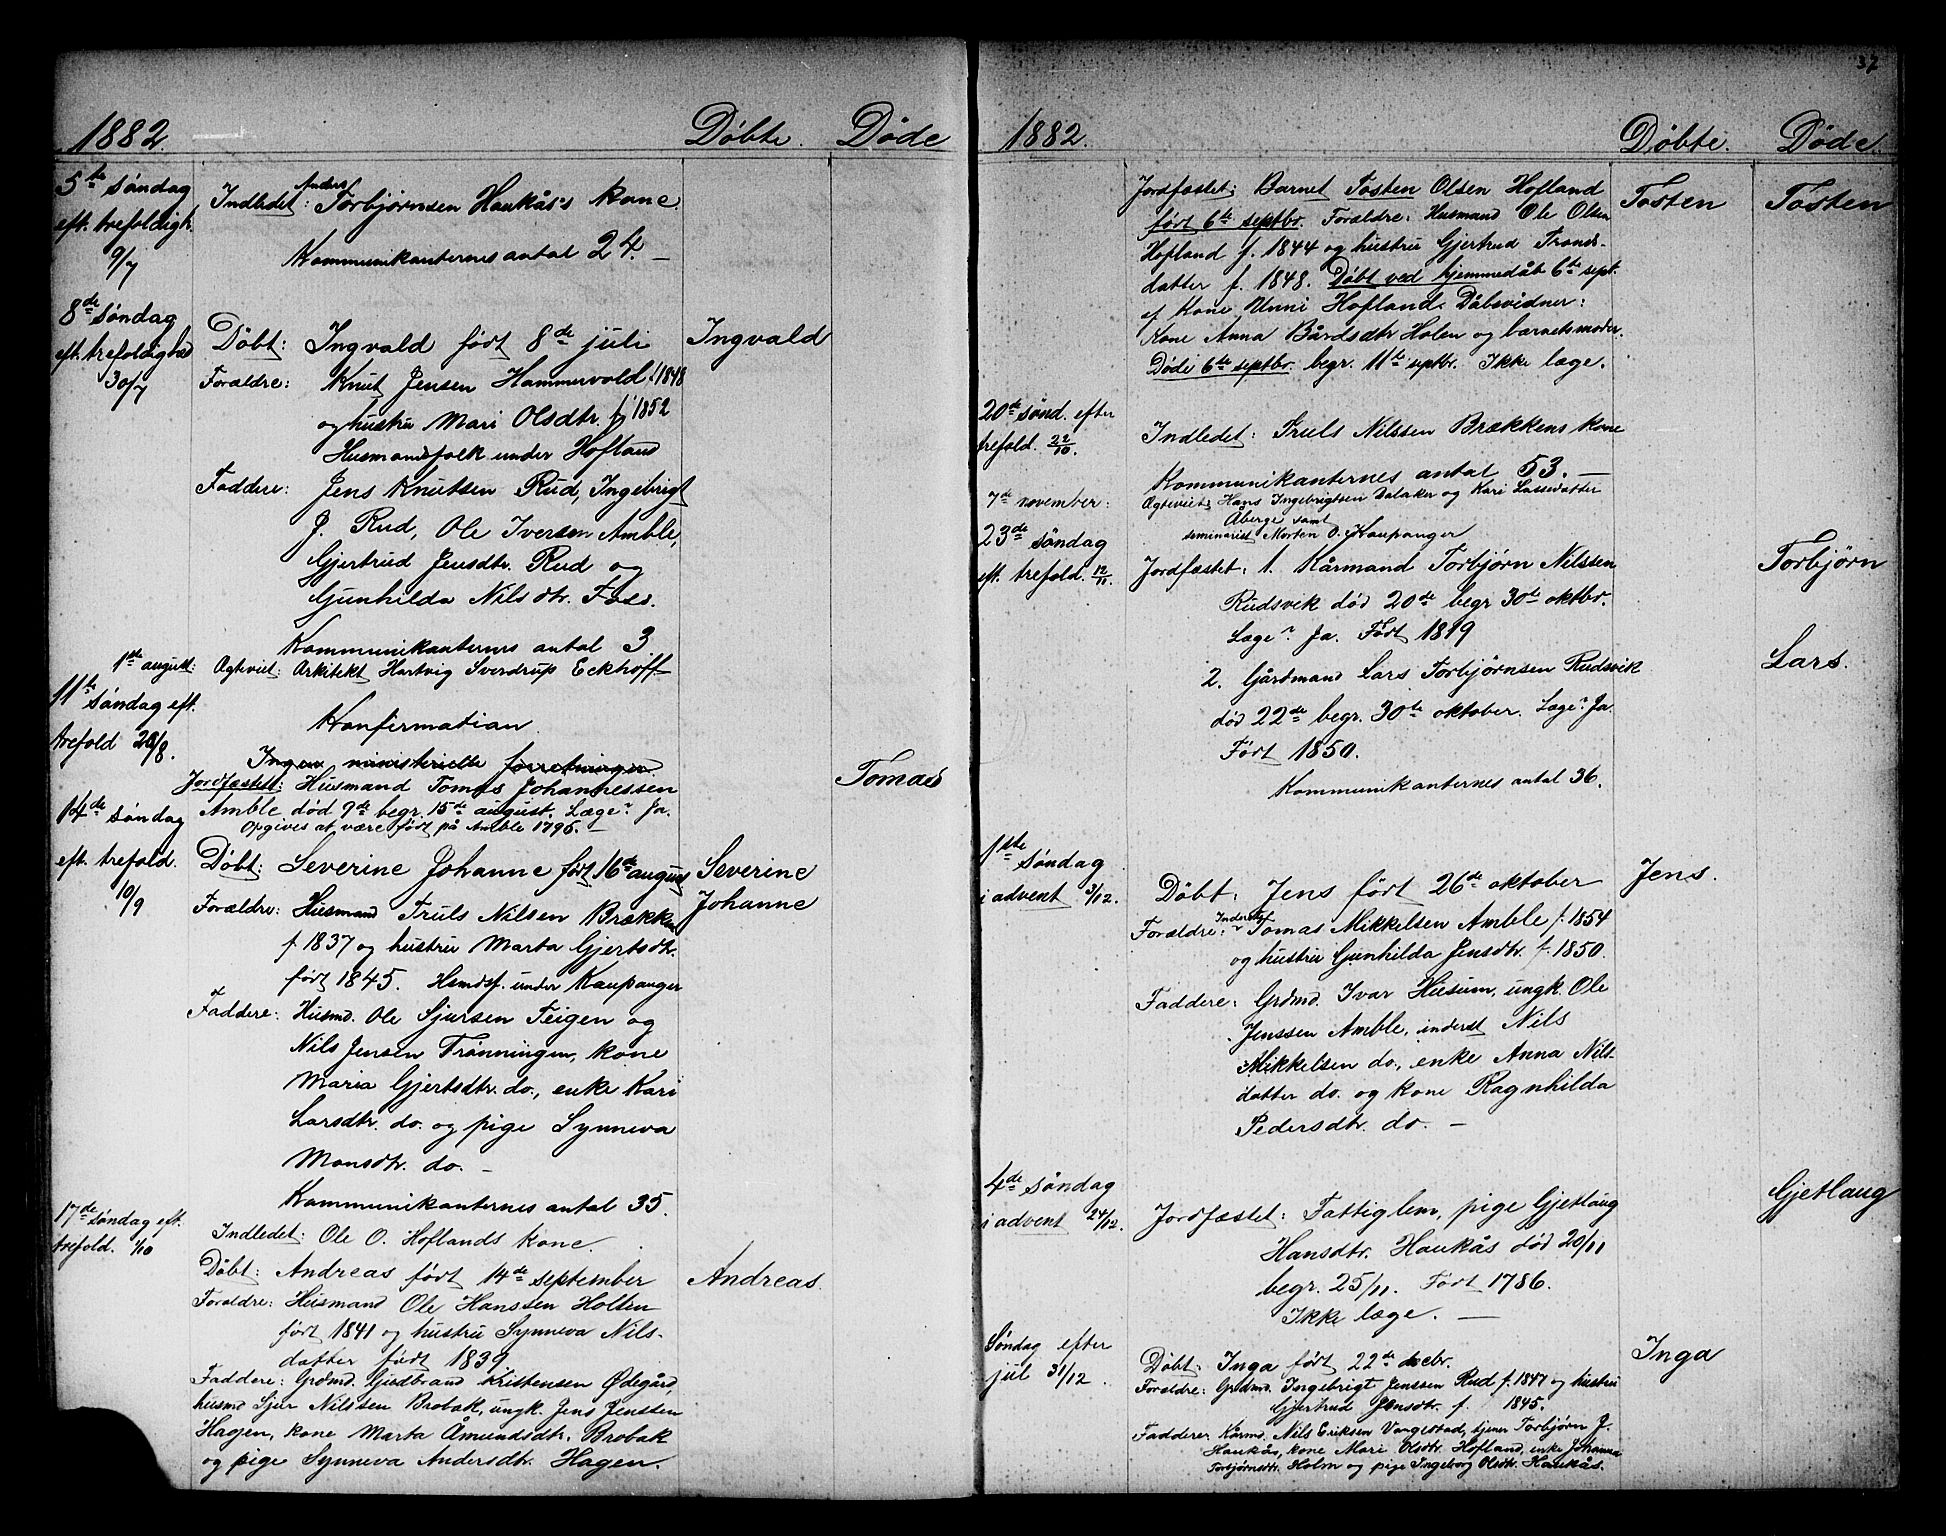 1882 Døbte. Døde
5te søndag
eft. trefoldigh.
9/7
Indledet: Anders Torbjørnsen Haukås's kone.
Kommunikanternes antal 24. —
8de søndag
eft. trefoldighed
30/7
Døbt: Ingvald født 8de juli
Ingvald
Forældre: Knut Jensen Hammervold f. 1848
og hustru Mari Olsdtr. f. 1852
Husmandsfolk under Hofland
Faddere: Jens Knutsen Rud, Ingebrigt
J. Rud, Ole Iversen Amble,
Gjertrud Jensdtr. Rud og
Gunhilda Nilsdtr. Foss.
Kommunikanternes antal 3.
1ste august: Ægteviet: Arkitekt Hartvig Sverdrup Eckhoff
11te søndag eft.
trefold 20/8.
Konfirmation
Ingen ministerielle forretninger.
Jordfæstet: Husmand Tomas Johannessen
Tomas
Amble død 9de begr. 15de august. Læge? Ja.
Opgives at være født på Amble 1795. —
14de søndag
eft. trefold.
10/9
Døbt: Severine Johanne født 16de august
Severine
Johanne
Forældre: Husmand Truls Nilsen Brækken
f. 1837 og hustru Marta Gjertsdtr.
født 1845. Hsmdsf. under Kaupanger
Faddere: Husmd. Ole Sjursen Teigen og
Nils Jensen Trønningen, kone
Maria Gjertsdtr. do., enke Kari
Larsdtr. do. og pige Synneva
Monsdtr. do. —
Kommunikanternes antal 35.
17de søndag eft.
trefold. 1/10
Indledet: Ole O. Hoflands kone.
Døbt: Andreas født 14de september
Andreas.
Forældre: Husmand Ole Hanssen Holten
født 1841 og hustru Synneva Nils-
datter født 1839
Faddere: Grdmd. Gudbrand Kristensen Ødegård,
husmd Sjur Nilssen Brobak, ungk. Jens Jenssen
Hagen, kone Marta Åmundsdtr. Brobak
og pige Synneva Andersdtr. Hagen.
37
1882. Døbte. Døde.
Jordfæstet: Barnet Tosten Olsen Hofland
Tosten
Tosten
født 6te septbr. Forældre: Husmand Ole Olsen
Hofland f. 1844 og hustru Gjertrud Tronds-
datter f. 1848. Døbt ved hjemmedåb 6te sept.
af Kone Unni Hofland. Dåbsvidner:
Kone Anna Bårdsdtr Holen og barnets moder.
Døde 6te septbr. begr. 11te septbr. Ikke læge.
20de sønd. efter
trefold. 22/10.
Indledet: Truls Nilssen Brækkens kone
Kommunikanternes antal 53. —
7de november:
Ægteviet: Hans Ingebrigtsen Dalaker og Kari Lassedatter
Åberge samt
seminarist Morten O. Kaupanger
23de søndag
eft. trefold. 12/11.
Jordfæstet: 1. Kårmand Torbjørn Nilssen
Torbjørn
Rudsvik død 20de begr 30te oktbr.
Læge? Ja. Født 1819
2. Gårdmand Lars Torbjørnsen Rudsvik
Lars.
død 22de begr. 30te oktober. Læge? Ja.
Født 1850.
Kommunikanternes antal 36.
1ste søndag
i advent 3/12.
Døbt: Jens født 26de oktober
Jens.
Forældre: Inderst Tomas Mikkelsen Amble f. 1854
og hustru Gunhilda Jensdtr. f. 1850.
Faddere: Grdmd. Ivar Husum, ungk. Ole
Jenssen Amble, inderst Nils
Mikkelsen do., enke Anna Nils-
datter do. og kone Ragnhilda
Pedersdtr. do. —
4de søndag
i advent 24/12.
Jordfæstet: Fattiglem, pige Gjetlaug
Gjetlaug
Hansdtr. Haukås død 20/11
begr. 25/11. Født 1786.
Ikke læge. —
Søndag efter
jul 31/12.
Døbt: Inga født 22de decbr.
Inga
Forældre: Grdmd. Ingebrigt Jenssen Rud f. 1847 og hustru
Gjertrud Jensdtr. f. 1845.
Faddere: Kårmd. Nils Eriksen Vangestad, tjener Torbjørn J.
Haukås, kone Mari Olsdtr. Hofland, enke Johanna
Torbjørnsdtr. Holm og pige Ingeborg Olsdtr. Haukås.